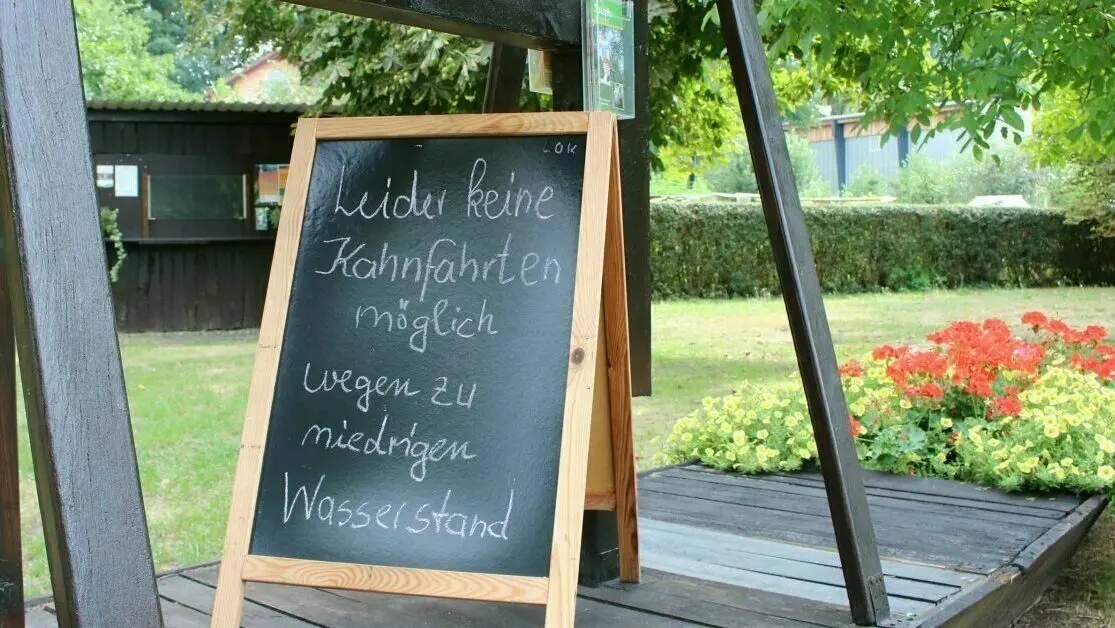 LOK
Leider keine
Kahnfahrten
möglich
wegen zu
niedrigen
Wasserstand